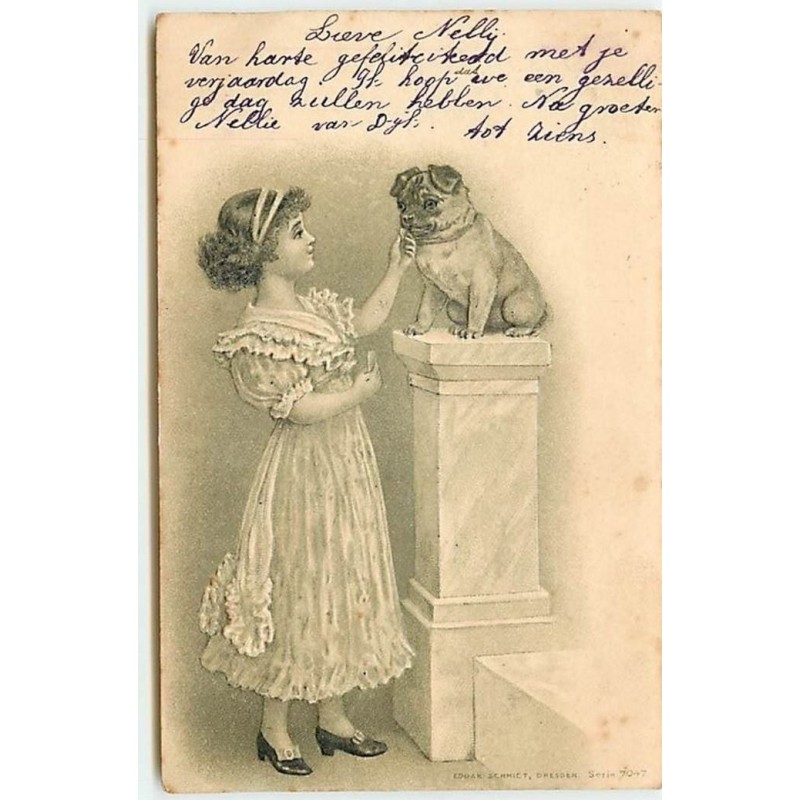 Lieve Nelly.
Van harte gefeliciteerd met je
verjaardag. Ik hoop dat we een gezelli-
ge dag zullen hebben. Na groeten
Nellie van Dijk. tot ziens.
EDGAR SCHMIDT, DRESDEN. Serie 7047